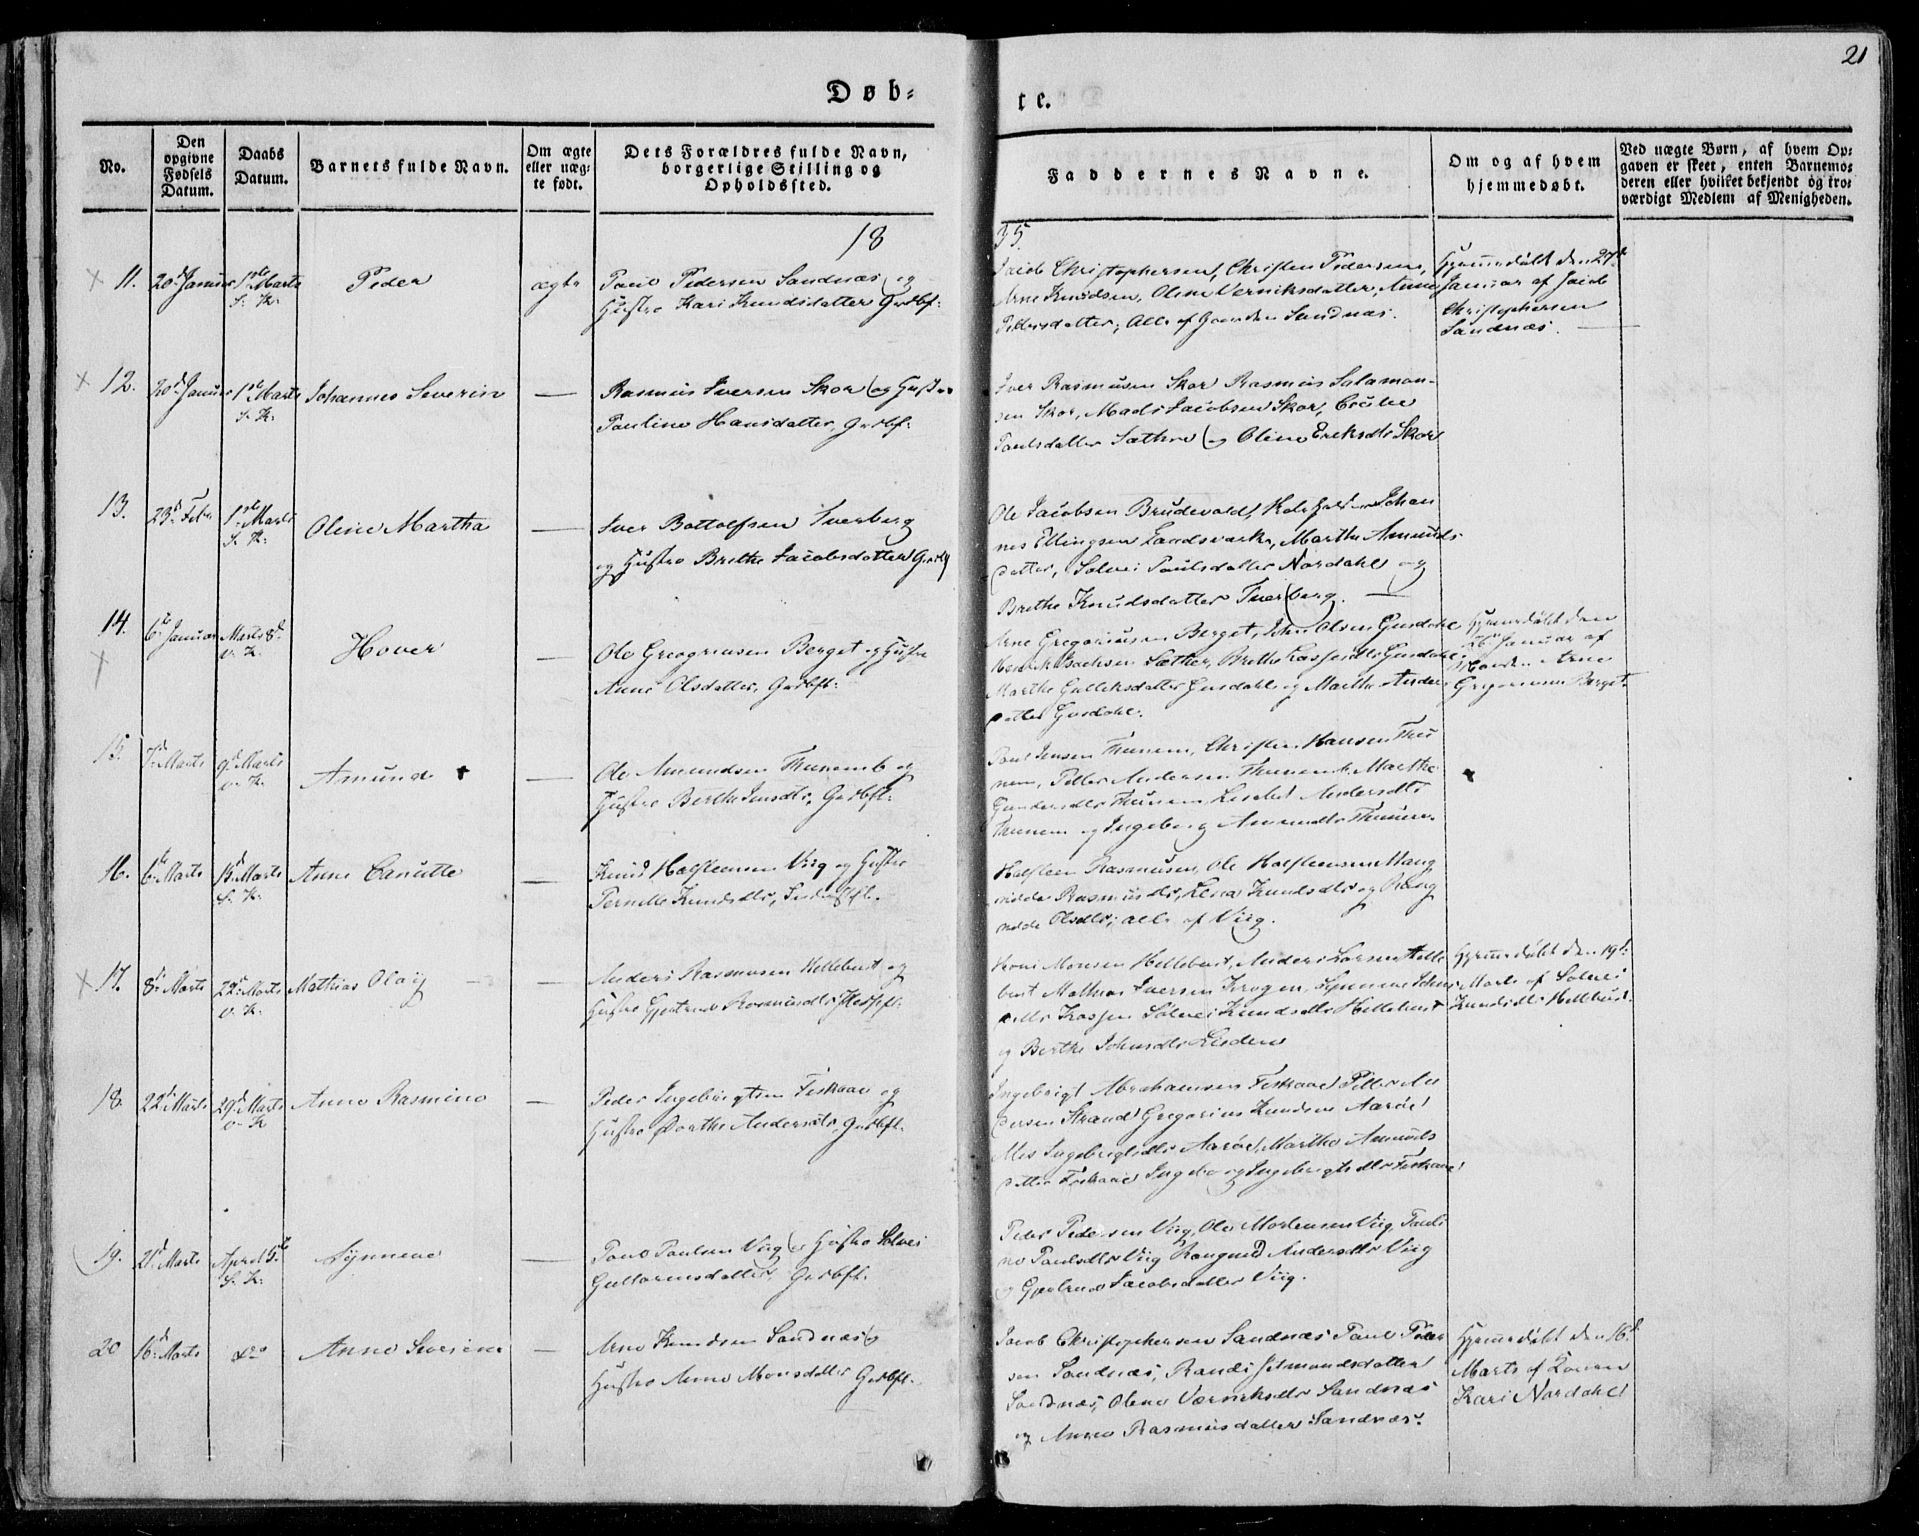 21
Døb-
te.
No.
Den opgivne Fødsels Datum.
Daabs Datum.
Barnets fulde Navn.
Om ægte eller uægte født.
Dets Forældres fulde Navn, borgerlige Stilling og Opholdssted.
Faddernes Navne.
Om og af hvem hjemmedøbt.
Ved uægte Børn, af hvem Opgaven er skeet, enten Barnemoderen eller hvilket bekjendt og troværdigt Medlem af Menigheden.
18
35.
11. 20d Januar 1ste Marts S. K. Peder ægte
Poul Pedersen Sandnæs og
Hustro Kari Knudsdatter Grdbf:
Jacob Christophersen, Christen Pedersen,
Arne Knudsen, Oline Verniksdatter, Anne
Pedersdatter; Alle af Gaarden Sandnæs.
Hjemmedøbt den 27d
Januar af Jacob
Christophersen
Sandnæs.
12. 20d Januar 1ste Marts S. K. Johannes Severin —
Rasmus Iversen Skor og Hustro
Pauline Hansdatter, Grdbf:
Iver Rasmusen Skor Rasmus Salamon-
sen Skor, Mads Jacobsen Skor,
Paulsdatter Sæthre og Oline Eriksdtr Skor
13. 23d Febr 1ste Marts S. K. Oline Martha —
Iver Bottolfsen Tverberg
og Hustro Brethe Jacobsdatter
Ole Jacobsen Brudevold, Johan
nes Ellingsen Landsværk, Marthe Amunds
datter, Solvei Paulsdatter Nordahl og
Brethe Knudsdatter Tverberg.
14. 6te Januar Marts 8d V. K. Hover —
Ole Gregoriusen Berget og Hustro
Anne Olsdatter, Grdbfl:
Arne Gregoriusen Berget, John Olsen Gusdahl
Henrik Isachsen Sæther, Brethe Gusdahl
Marthe Gulleksdatter Gusdahl og Marthe Anders
datter Gusdahl.
Hjemmedøbt den
26 Januar af
Arne
Gregoriusen Berget.
15. 7d Marts 9d Marts V. K. Amund —
Ole Amundsen Thunem og
Hustro Berthe Jensdtr, Grdbfl:
Poul Jensen Thunem, Christen Hansen Thu
nem, Petter Andersen Thunem, Marthe
Gundersdtr Thunem, Lisebet Andersdtr
Thunem og Ingeborg Amundsdtr Thunem.
16. 6te Marts 15d Marts S. K. Anne Canutte —
Knud Halsteensen Viig og Hustro
Pernille Knudsdtr,
Halsteen Rasmusen, Ole Halsteensen Rang
nilde Rasmusdtr, Lena Knudsdtr og Rang
nilde Olsdtr; alle af Viig.
17. 8d Marts 22d Marts V. K. Mathias Olaij —
Anders Rasmusen Hellebust og
Hustro Gjertrud Rasmusdtr
Monsen Hellebust, Anders Larsen Helle
bust Mathias Iversen Krogen, Synneve Johns
dtr Krogen Solvei Knudsdtr Hellebust
og Berthe Johnsdtr
Hjemmedøbt den 19d
Marts af Solvei
Knudsdtr Hellebust.
18. 22d Marts 29d Marts V. K Anne Rasmine —
Peder Ingebrigtsen Fiskaae og
Hustro Dorthe Andersdtr, Grdbfl.
Ingebrigt Abrahamsen Fiskaae Petter An
dersen Strand Gregorius Knudsen Aarøe
Ingebrigtsdtr Aarøe, Marthe Amunds
datter Fiskaae Ingeborg Ingebrigtsdtr Fiskaae
19. 21d Marts April 5te S. K. Synneve —
Poul Poulsen Viig og Hustro Solvei
Guttormsdatter, Grdbfl.
Peder Pedersen Viig, Ole Mortensen Viig, Pauli
ne Poulsdtr Viig Rangnild Andersdtr Viig
og Gjertrud Jacobsdatter Viig.
20 16d Marts dto Anne Severine —
Arne Knudsen Sandnæs og
Hustro Anne Monsdatter Grdbfl.
Jacob Christophersen Sandnæs Poul Peder
sen Sandnæs, Randi Sjetmundsdatter
Sandnæs, Olena Værniksdtr Sandnæs
og Anne Rasmusdatter Sandnæs.
Hjemmedøbt den 16d
Marts af Konen
Kari Nordahl